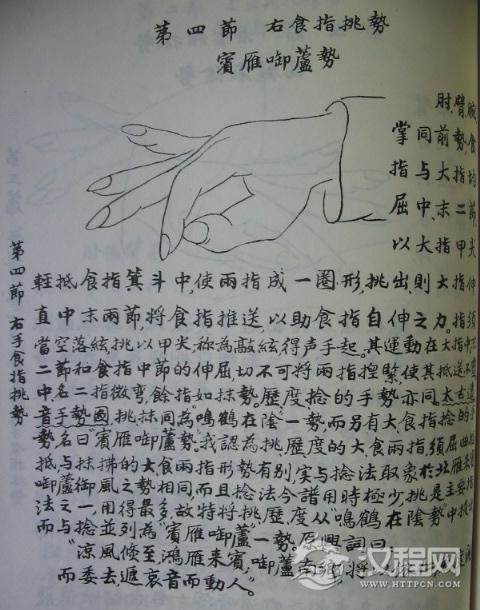 第四節　右食指挑勢
賓雁啣蘆勢
肘臂腕
掌同前勢食
指与大指均
屈中末二節
以大指甲尖
輕抵食指箕斗中,使兩指成一圈形,挑出,則大指伸
直中末兩節,將食指推送,以助食指自伸之力.指須
當空落絃,挑以甲尖,称為敵絃得声手起。其運動在大指中
二節和食指中節的伸屈,切不可將兩指捏緊,使其抵送不
中名二指微弯,餘指如抹勢。歷度捻的手勢亦同.太古遺
音手勢圖,挑抹同為"鳴鶴在陰"一勢.而另有大食指捻的手
勢名曰"賓雁啣蘆勢".我認為挑歷度的大食兩指,須屈曲
抵,与抹拂的大食兩指形勢有别,实与捻法取象於北雁
啣蘆御風之勢相同,而且捻法今譜用時極少,挑是主要指
法之一,用得最多,故特將挑歷度,从"鳴鶴在陰勢"中提出
而与捻並列為"賓雁啣蘆"一勢。原興詞曰
"涼風倏至,鴻雁来賓;啣蘆南鄉,將以依
而委去,遞哀音而動人"。
第四節　右手食指挑勢
汉程网
HTTPCN.COM